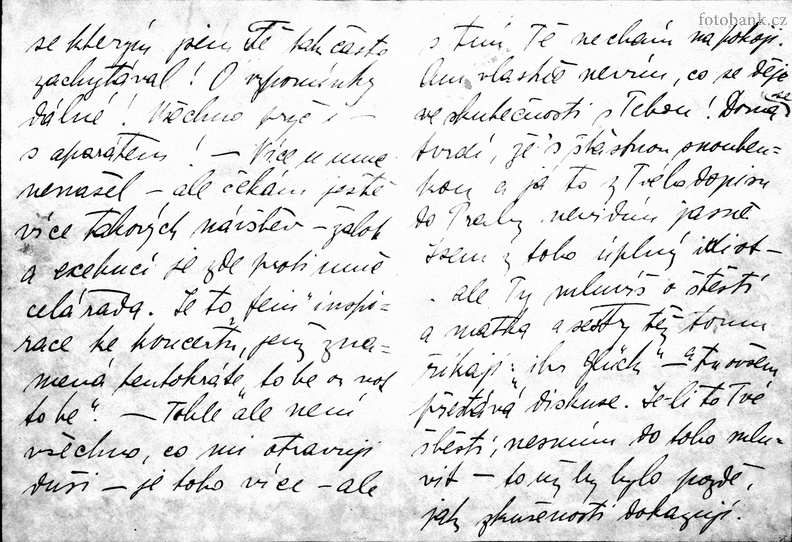 fotobank.cz
se kterým jsem Tě tak často
zachytával! O vzpomínky
dálné! Všechno pryč i –
s aparátem! – Více u mne
nenašel – ale čekám ještě
více takových návštěv – žalob
a exekucí je zde proti mně
celá řada. Je to „fein“ inspi-
race ke koncertu, jenž zna-
mená tentokráte „to be or not
to be“. – Tohle ale není
všechno, co mi otravuje
duši – je toho více – ale
s tím Tě nechám na pokoji.
Ani vlastně nevím, co se děje
ve skutečnosti s Tebou! Doma se
tvrdí, že's šťastnou snouben-
kou a já to z Tvého dopisu
do Prahy nevidím jasně
Jsem z toho úplný idiot –
– ale Ty mluvíš o štěstí
a matka a sestry též tomu
říkají: „ihr Glück“ – a tu ovšem
přestává diskuse. Je-li to Tvé
štěstí, nesmím do toho mlu-
vit – to už by bylo pozdě,
jak zkušenosti dokazují.